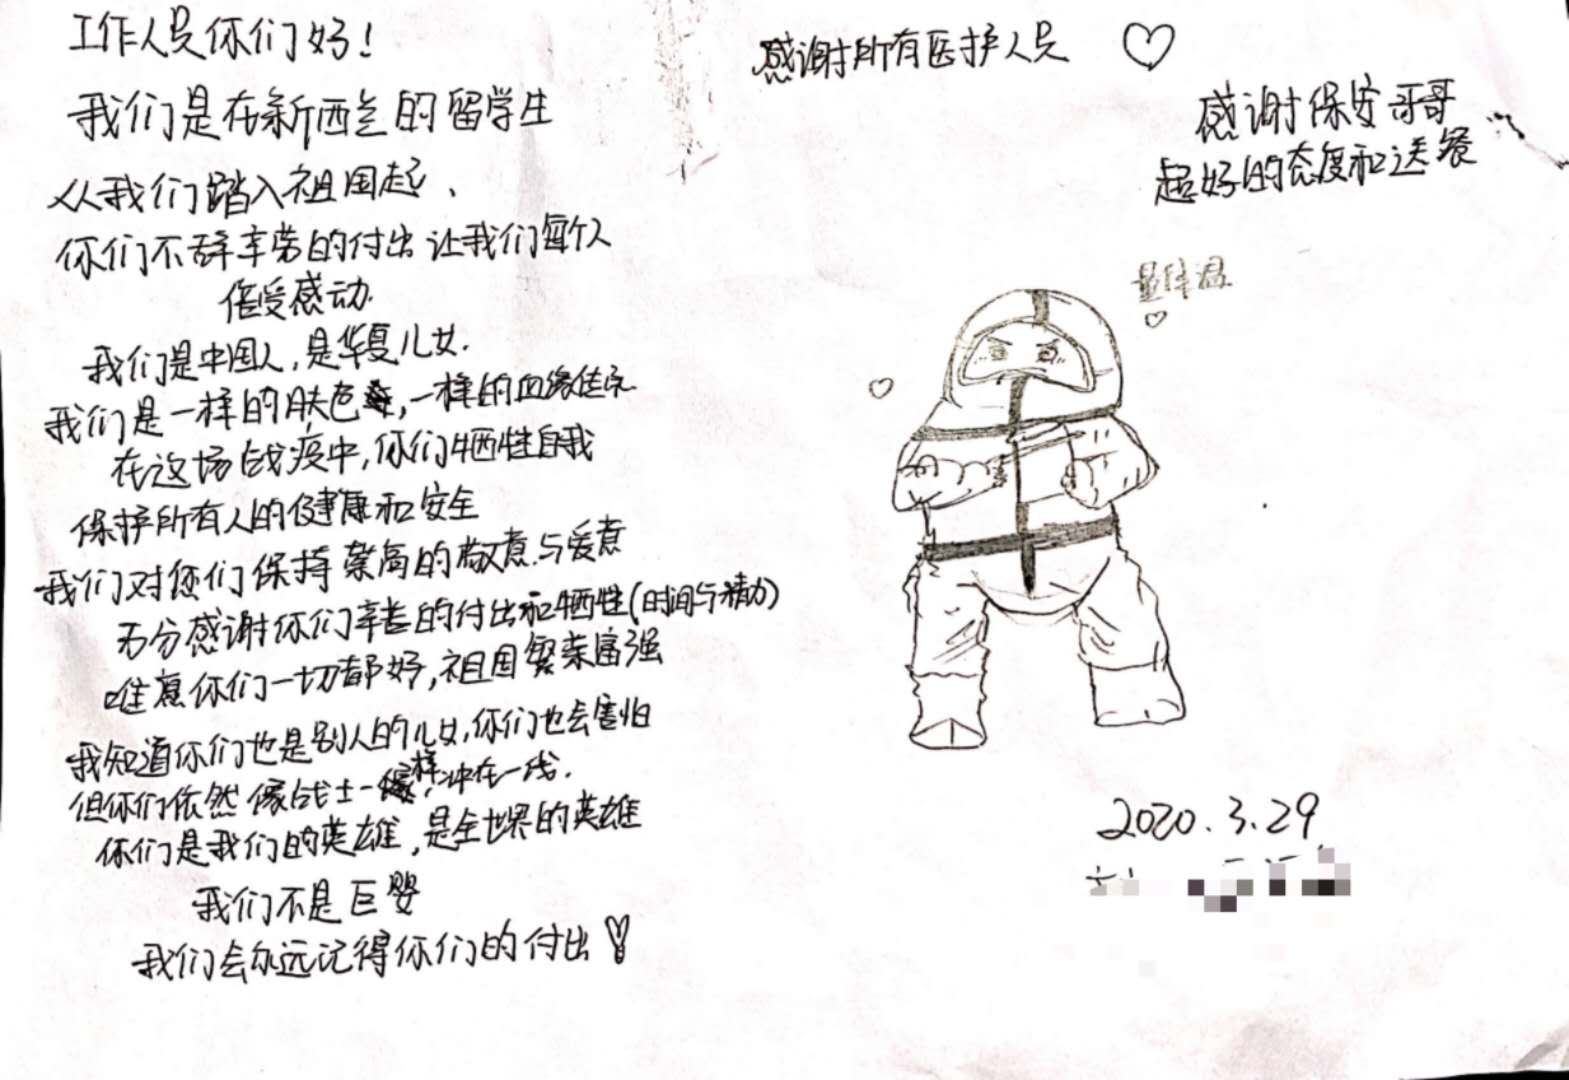 工作人员你们好!
我们是在新西兰的留学生
从我们踏入祖国起、
你们不辞辛劳的付出让我们每个人
倍受感动.
我们是中国人,是华夏儿女.
我们是一样的肤色,一样的血缘体系
在这场战疫中,你们牺牲自我
保护所有人的健康和安全
我们对您们保持崇高的敬意与爱意
万分感谢你们辛苦的付出和牺牲(时间与精力)
唯愿你们一切都好,祖国繁荣富强
我知道你们也是别人的儿女,你们也会害怕
但你们依然像战士一样,冲在一线.
你们是我们的英雄,是全世界的英雄
我们不是巨婴
我们会永远记得你们的付出!
感谢所有医护人员
感谢保安哥哥
超好的态度和送餐
量体温
2020.3.29